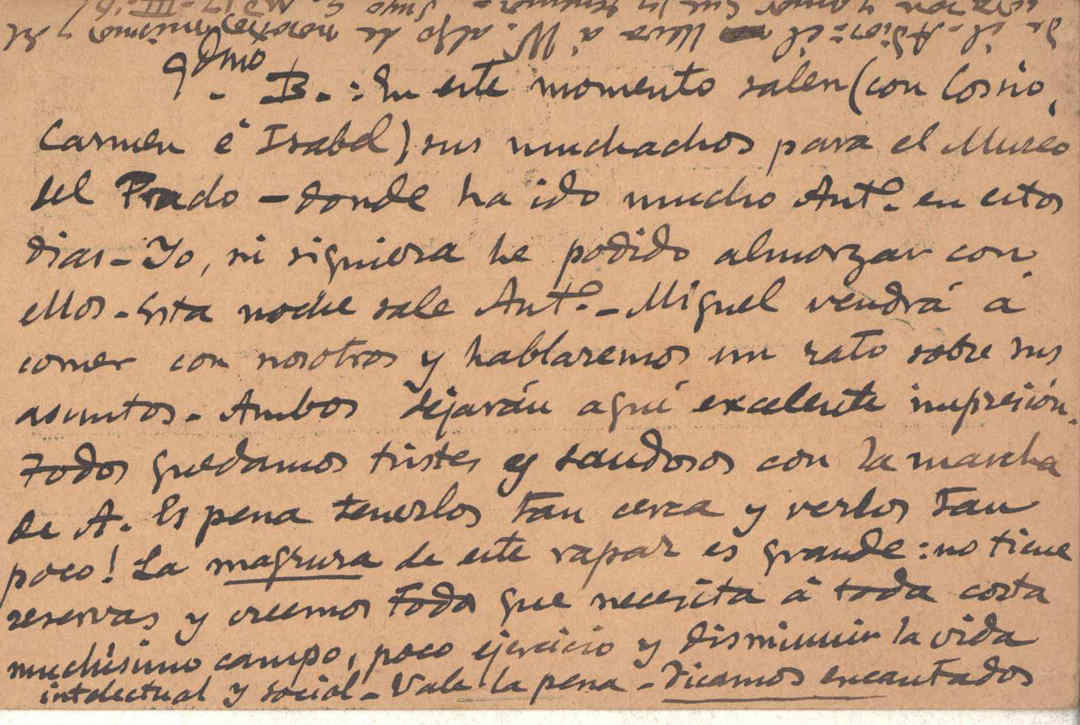 Qdmo
B.: En este momento salen (con Cossio,
Carmen é Isabel) sus muchachos para el Museo
del Prado – donde ha ido mucho Ant.º en estos
dias – Yo, ni siquiera he podido almorzar con
ellos – Esta noche sale Ant.º – Miguel vendrá á
comer con nosotros y hablaremos un rato sobre sus
asuntos – Ambos dejarán aquí excelente impresión.
Todos quedamos tristes y saudosos con la marcha
de A. Es pena tenerlos tan cerca y verlos tan
poco! La magrura de este rapaz es grande: no tiene
reservas y creemos todos que necesita á toda costa
muchísimo campo, poco ejercicio y disminuir la vida
intelectual y social – Vale la pena – Dicamos encantados
de él – Adios: él lleva á M. algo de